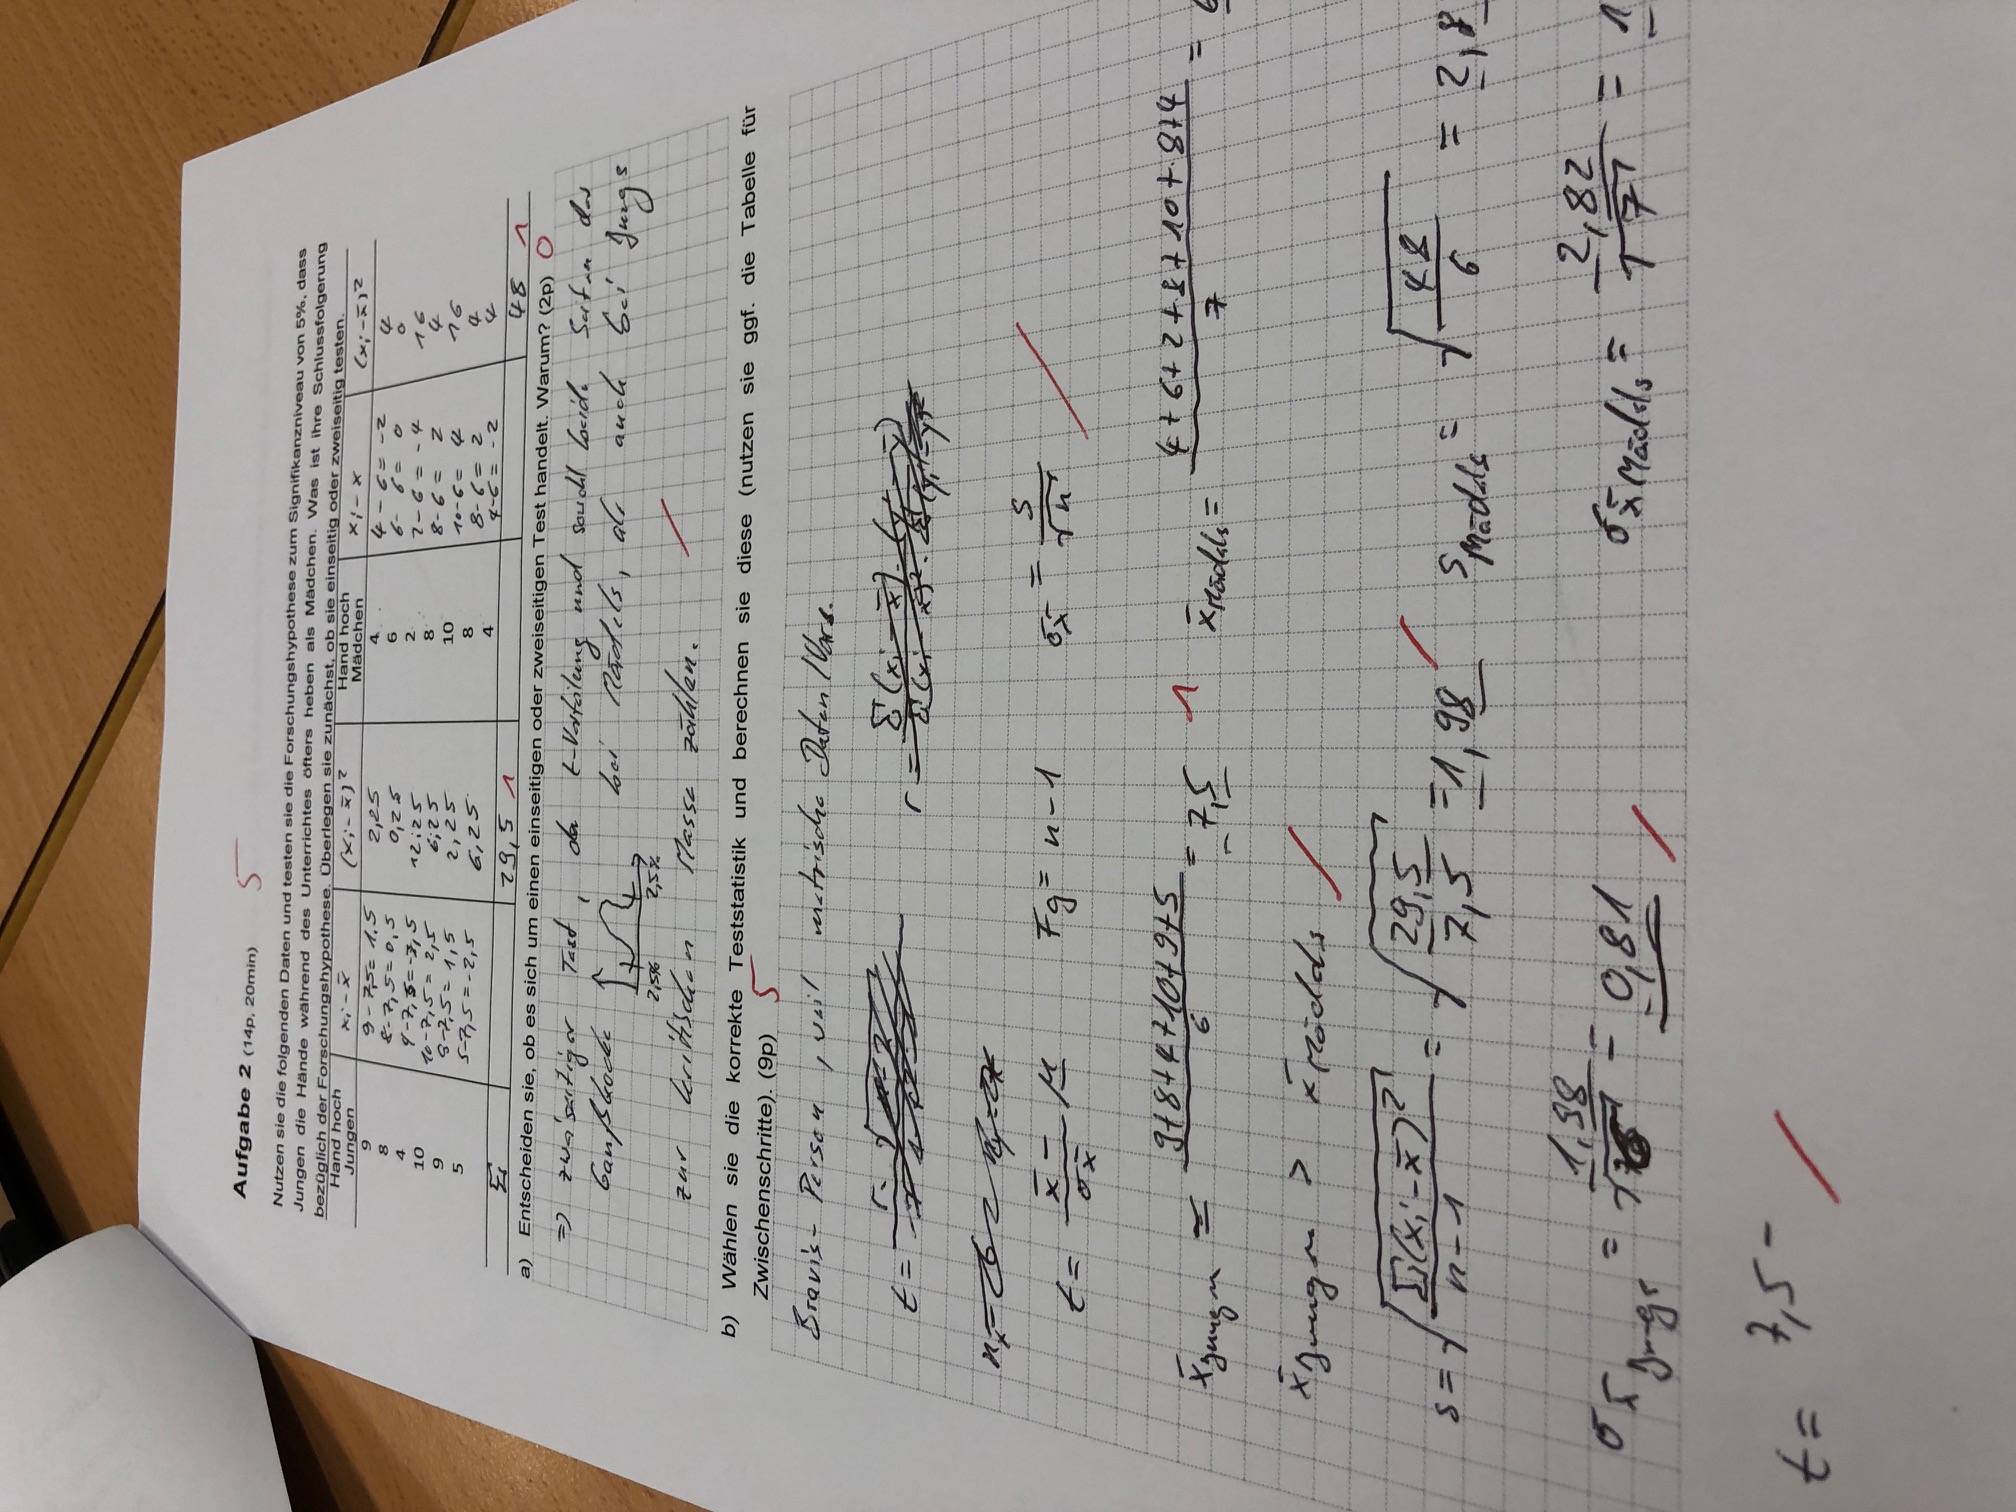 Aufgabe 2 (14p, 20min) 5
Nutzen sie die folgenden Daten und testen sie die Forschungshypothese zum Signifikanzniveau von 5%, dass
Jungen die Hände während des Unterrichtes öfters heben als Mädchen. Was ist ihre Schlussfolgerung
bezüglich der Forschungshypothese. Überlegen sie zunächst, ob sie einseitig oder zweiseitig testen.
Hand hoch Jungen xi - x̄ (xi - x̄)² Hand hoch Mädchen xi - x (xi - x̄)²
9 9-7,5= 1,5 2,25 4 4-6= -2 4
8 8-7,5= 0,5 0,25 6 6-6= 0 0
4 4-7,5=-3,5 12,25 2 2-6= -4 16
10 10-7,5= 2,5 6,25 8 8-6= 2 4
9 9-7,5= 1,5 2,25 10 10-6= 4 16
5 5-7,5=-2,5 6,25 8 8-6= 2 4
4 4-6= -2 4
Σ 29,5 1 48 1
a) Entscheiden sie, ob es sich um einen einseitigen oder zweiseitigen Test handelt. Warum? (2p) 0
=> zweiseitiger Test, da t-Verteilung und sowohl beide Seiten der
Gaußglocke bei Mädels, als auch bei Jungs
2,5% 2,5%
zur kritischen Masse zählen.
b) Wählen sie die korrekte Teststatistik und berechnen sie diese (nutzen sie ggf. die Tabelle für
Zwischenschritte). (9p) 5
Bravis-Person, weil metrische Daten/Vars.
t= r =
t= x̄ - μ / σx̄ Fg= n-1 σx̄ = s / √n
x̄Jungen = 9+8+4+10+9+5 / 6 = 7,5 1 x̄Mädels = 4+6+2+8+10+8+4 / 7 = 6
x̄Jungen > x̄Mädels
s = √Σ(xi-x̄)² / n-1 = √29,5 / 7,5 =1,98 sMädels = √48 / 6 = 2,8
σx̄Jungs = 1,98 / √ = 0,81 σx̄Mädels = 2,82 / √7 = 1
t= 7,5 -